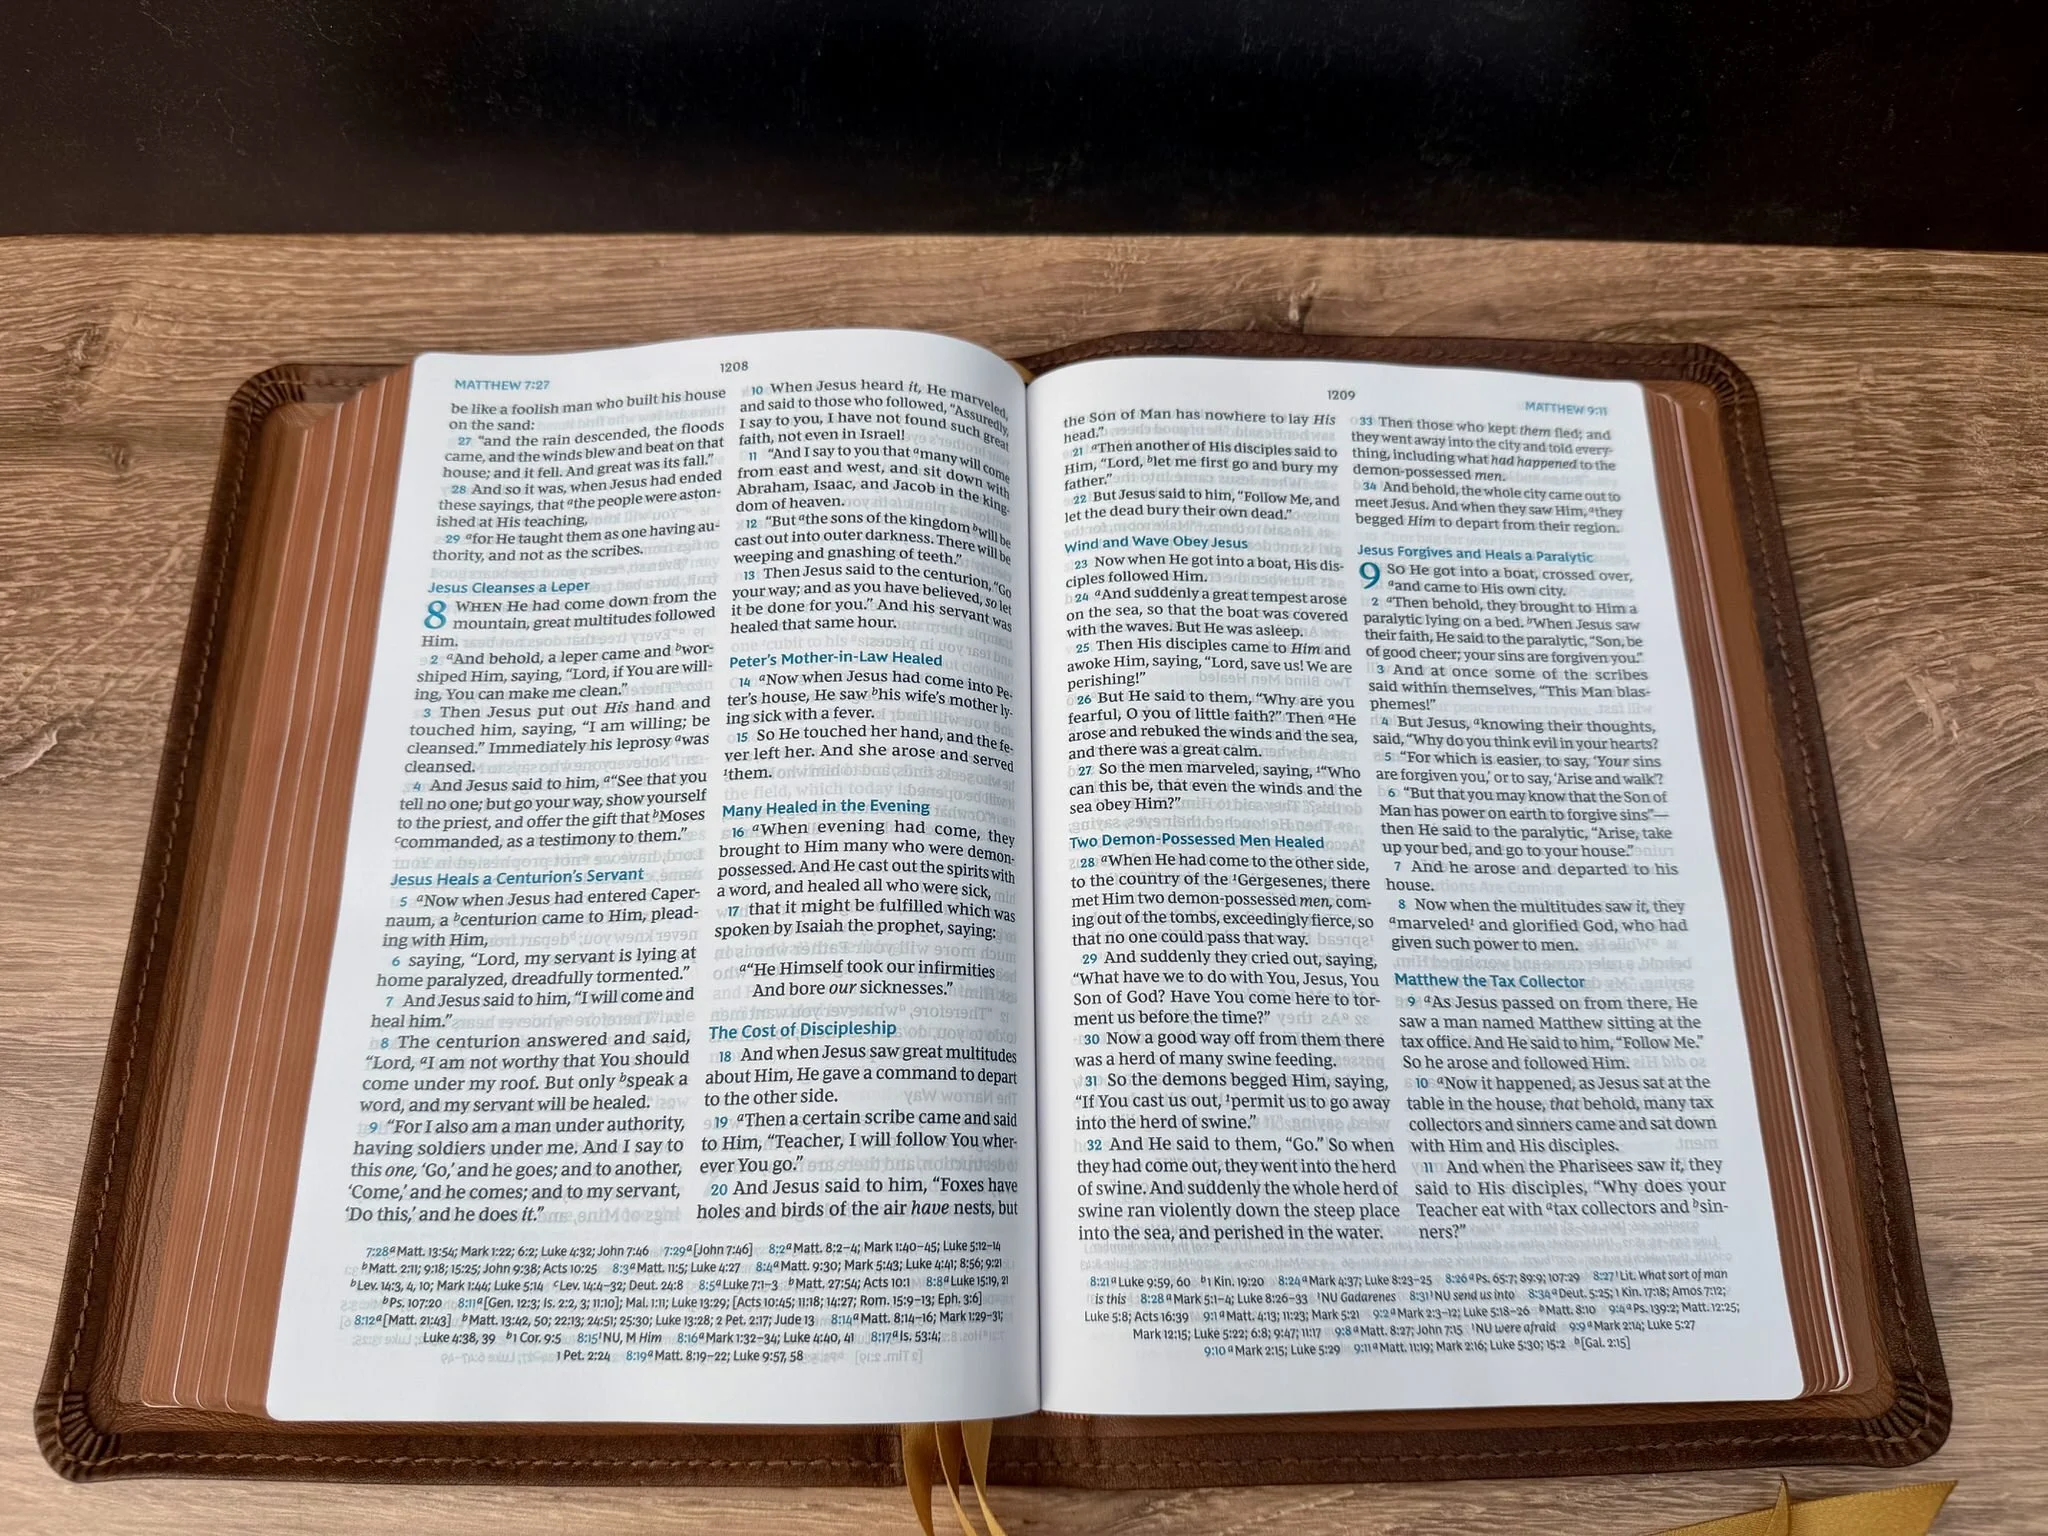 1208
MATTHEW 7:27
be like a foolish man who built his house
on the sand:
27 “and the rain descended, the floods
came, and the winds blew and beat on that
house; and it fell. And great was its fall.”
28 And so it was, when Jesus had ended
these sayings, that ᵃthe people were aston-
ished at His teaching,
29 ᵃfor He taught them as one having au-
thority, and not as the scribes.
Jesus Cleanses a Leper
8 WHEN He had come down from the
mountain, great multitudes followed
Him.
2 ᵃAnd behold, a leper came and ᵇwor-
shiped Him, saying, “Lord, if You are will-
ing, You can make me clean.”
3 Then Jesus put out His hand and
touched him, saying, “I am willing; be
cleansed.” Immediately his leprosy ᵃwas
cleansed.
4 And Jesus said to him, ᵃ“See that you
tell no one; but go your way, show yourself
to the priest, and offer the gift that ᵇMoses
ᶜcommanded, as a testimony to them.”
Jesus Heals a Centurion’s Servant
5 ᵃNow when Jesus had entered Caper-
naum, a ᵇcenturion came to Him, plead-
ing with Him,
6 saying, “Lord, my servant is lying at
home paralyzed, dreadfully tormented.”
7 And Jesus said to him, “I will come and
heal him.”
8 The centurion answered and said,
“Lord, ᵃI am not worthy that You should
come under my roof. But only ᵇspeak a
word, and my servant will be healed.
9 “For I also am a man under authority,
having soldiers under me. And I say to
this one, ‘Go,’ and he goes; and to another,
‘Come,’ and he comes; and to my servant,
‘Do this,’ and he does it.”
10 When Jesus heard it, He marveled,
and said to those who followed, “Assuredly,
I say to you, I have not found such great
faith, not even in Israel!
11 “And I say to you that ᵃmany will come
from east and west, and sit down with
Abraham, Isaac, and Jacob in the king-
dom of heaven.
12 “But ᵃthe sons of the kingdom ᵇwill be
cast out into outer darkness. There will be
weeping and gnashing of teeth.”
13 Then Jesus said to the centurion, “Go
your way; and as you have believed, so let
it be done for you.” And his servant was
healed that same hour.
Peter’s Mother-in-Law Healed
14 ᵃNow when Jesus had come into Pe-
ter’s house, He saw ᵇhis wife’s mother ly-
ing sick with a fever.
15 So He touched her hand, and the fe-
ver left her. And she arose and served
¹them.
Many Healed in the Evening
16 ᵃWhen evening had come, they
brought to Him many who were demon-
possessed. And He cast out the spirits with
a word, and healed all who were sick,
17 that it might be fulfilled which was
spoken by Isaiah the prophet, saying:
ᵃ“He Himself took our infirmities
And bore our sicknesses.”
The Cost of Discipleship
18 And when Jesus saw great multitudes
about Him, He gave a command to depart
to the other side.
19 ᵃThen a certain scribe came and said
to Him, “Teacher, I will follow You wher-
ever You go.”
20 And Jesus said to him, “Foxes have
holes and birds of the air have nests, but
7:28 ᵃ Matt. 13:54; Mark 1:22; 6:2; Luke 4:32; John 7:46 7:29 ᵃ [John 7:46] 8:2 ᵃ Matt. 8:2–4; Mark 1:40–45; Luke 5:12–14
ᵇ Matt. 2:11; 9:18; 15:25; John 9:38; Acts 10:25 8:3 ᵃ Matt. 11:5; Luke 4:27 8:4 ᵃ Matt. 9:30; Mark 5:43; Luke 4:41; 8:56; 9:21
ᵇ Lev. 14:3, 4, 10; Mark 1:44; Luke 5:14 ᶜ Lev. 14:4–32; Deut. 24:8 8:5 ᵃ Luke 7:1–3 ᵇ Matt. 27:54; Acts 10:1 8:8 ᵃ Luke 15:19, 21
ᵇ Ps. 107:20 8:11 ᵃ [Gen. 12:3; Is. 2:2, 3; 11:10]; Mal. 1:11; Luke 13:29; [Acts 10:45; 11:18; 14:27; Rom. 15:9–13; Eph. 3:6]
8:12 ᵃ [Matt. 21:43] ᵇ Matt. 13:42, 50; 22:13; 24:51; 25:30; Luke 13:28; 2 Pet. 2:17; Jude 13 8:14 ᵃ Matt. 8:14–16; Mark 1:29–31;
Luke 4:38, 39 ᵇ 1 Cor. 9:5 8:15 ¹ NU, M Him 8:16 ᵃ Mark 1:32–34; Luke 4:40, 41 8:17 ᵃ Is. 53:4;
1 Pet. 2:24 8:19 ᵃ Matt. 8:19–22; Luke 9:57, 58
1209
MATTHEW 9:11
the Son of Man has nowhere to lay His
head.”
21 ᵃThen another of His disciples said to
Him, “Lord, ᵇlet me first go and bury my
father.”
22 But Jesus said to him, “Follow Me, and
let the dead bury their own dead.”
Wind and Wave Obey Jesus
23 Now when He got into a boat, His dis-
ciples followed Him.
24 ᵃAnd suddenly a great tempest arose
on the sea, so that the boat was covered
with the waves. But He was asleep.
25 Then His disciples came to Him and
awoke Him, saying, “Lord, save us! We are
perishing!”
26 But He said to them, “Why are you
fearful, O you of little faith?” Then ᵃHe
arose and rebuked the winds and the sea,
and there was a great calm.
27 So the men marveled, saying, ¹“Who
can this be, that even the winds and the
sea obey Him?”
Two Demon-Possessed Men Healed
28 ᵃWhen He had come to the other side,
to the country of the ¹Gergesenes, there
met Him two demon-possessed men, com-
ing out of the tombs, exceedingly fierce, so
that no one could pass that way.
29 And suddenly they cried out, saying,
“What have we to do with You, Jesus, You
Son of God? Have You come here to tor-
ment us before the time?”
30 Now a good way off from them there
was a herd of many swine feeding.
31 So the demons begged Him, saying,
“If You cast us out, ¹permit us to go away
into the herd of swine.”
32 And He said to them, “Go.” So when
they had come out, they went into the herd
of swine. And suddenly the whole herd of
swine ran violently down the steep place
into the sea, and perished in the water.
33 Then those who kept them fled; and
they went away into the city and told every-
thing, including what had happened to the
demon-possessed men.
34 And behold, the whole city came out to
meet Jesus. And when they saw Him, ᵃthey
begged Him to depart from their region.
Jesus Forgives and Heals a Paralytic
9 So He got into a boat, crossed over,
ᵃand came to His own city.
2 ᵃThen behold, they brought to Him a
paralytic lying on a bed. ᵇWhen Jesus saw
their faith, He said to the paralytic, “Son, be
of good cheer; your sins are forgiven you.”
3 And at once some of the scribes
said within themselves, “This Man blas-
phemes!”
4 But Jesus, ᵃknowing their thoughts,
said, “Why do you think evil in your hearts?
5 “For which is easier, to say, ‘Your sins
are forgiven you,’ or to say, ‘Arise and walk’?
6 “But that you may know that the Son of
Man has power on earth to forgive sins”—
then He said to the paralytic, “Arise, take
up your bed, and go to your house.”
7 And he arose and departed to his
house.
8 Now when the multitudes saw it, they
ᵃmarveled¹ and glorified God, who had
given such power to men.
Matthew the Tax Collector
9 ᵃAs Jesus passed on from there, He
saw a man named Matthew sitting at the
tax office. And He said to him, “Follow Me.”
So he arose and followed Him.
10 ᵃNow it happened, as Jesus sat at the
table in the house, that behold, many tax
collectors and sinners came and sat down
with Him and His disciples.
11 And when the Pharisees saw it, they
said to His disciples, “Why does your
Teacher eat with ᵃtax collectors and ᵇsin-
ners?”
8:21 ᵃ Luke 9:59, 60 ᵇ 1 Kin. 19:20 8:24 ᵃ Mark 4:37; Luke 8:23–25 8:26 ᵃ Ps. 65:7; 89:9; 107:29 8:27 ¹ Lit. What sort of man
is this 8:28 ᵃ Mark 5:1–4; Luke 8:26–33 ¹ NU Gadarenes 8:31 ¹ NU send us into 8:34 ᵃ Deut. 5:25; 1 Kin. 17:18; Amos 7:12;
Luke 5:8; Acts 16:39 9:1 ᵃ Matt. 4:13; 11:23; Mark 5:21 9:2 ᵃ Mark 2:3–12; Luke 5:18–26 ᵇ Matt. 8:10 9:4 ᵃ Ps. 139:2; Matt. 12:25;
Mark 12:15; Luke 5:22; 6:8; 9:47; 11:17 9:8 ᵃ Matt. 8:27; John 7:15 ¹ NU were afraid 9:9 ᵃ Mark 2:14; Luke 5:27
9:10 ᵃ Mark 2:15; Luke 5:29 9:11 ᵃ Matt. 11:19; Mark 2:16; Luke 5:30; 15:2 ᵇ [Gal. 2:15]